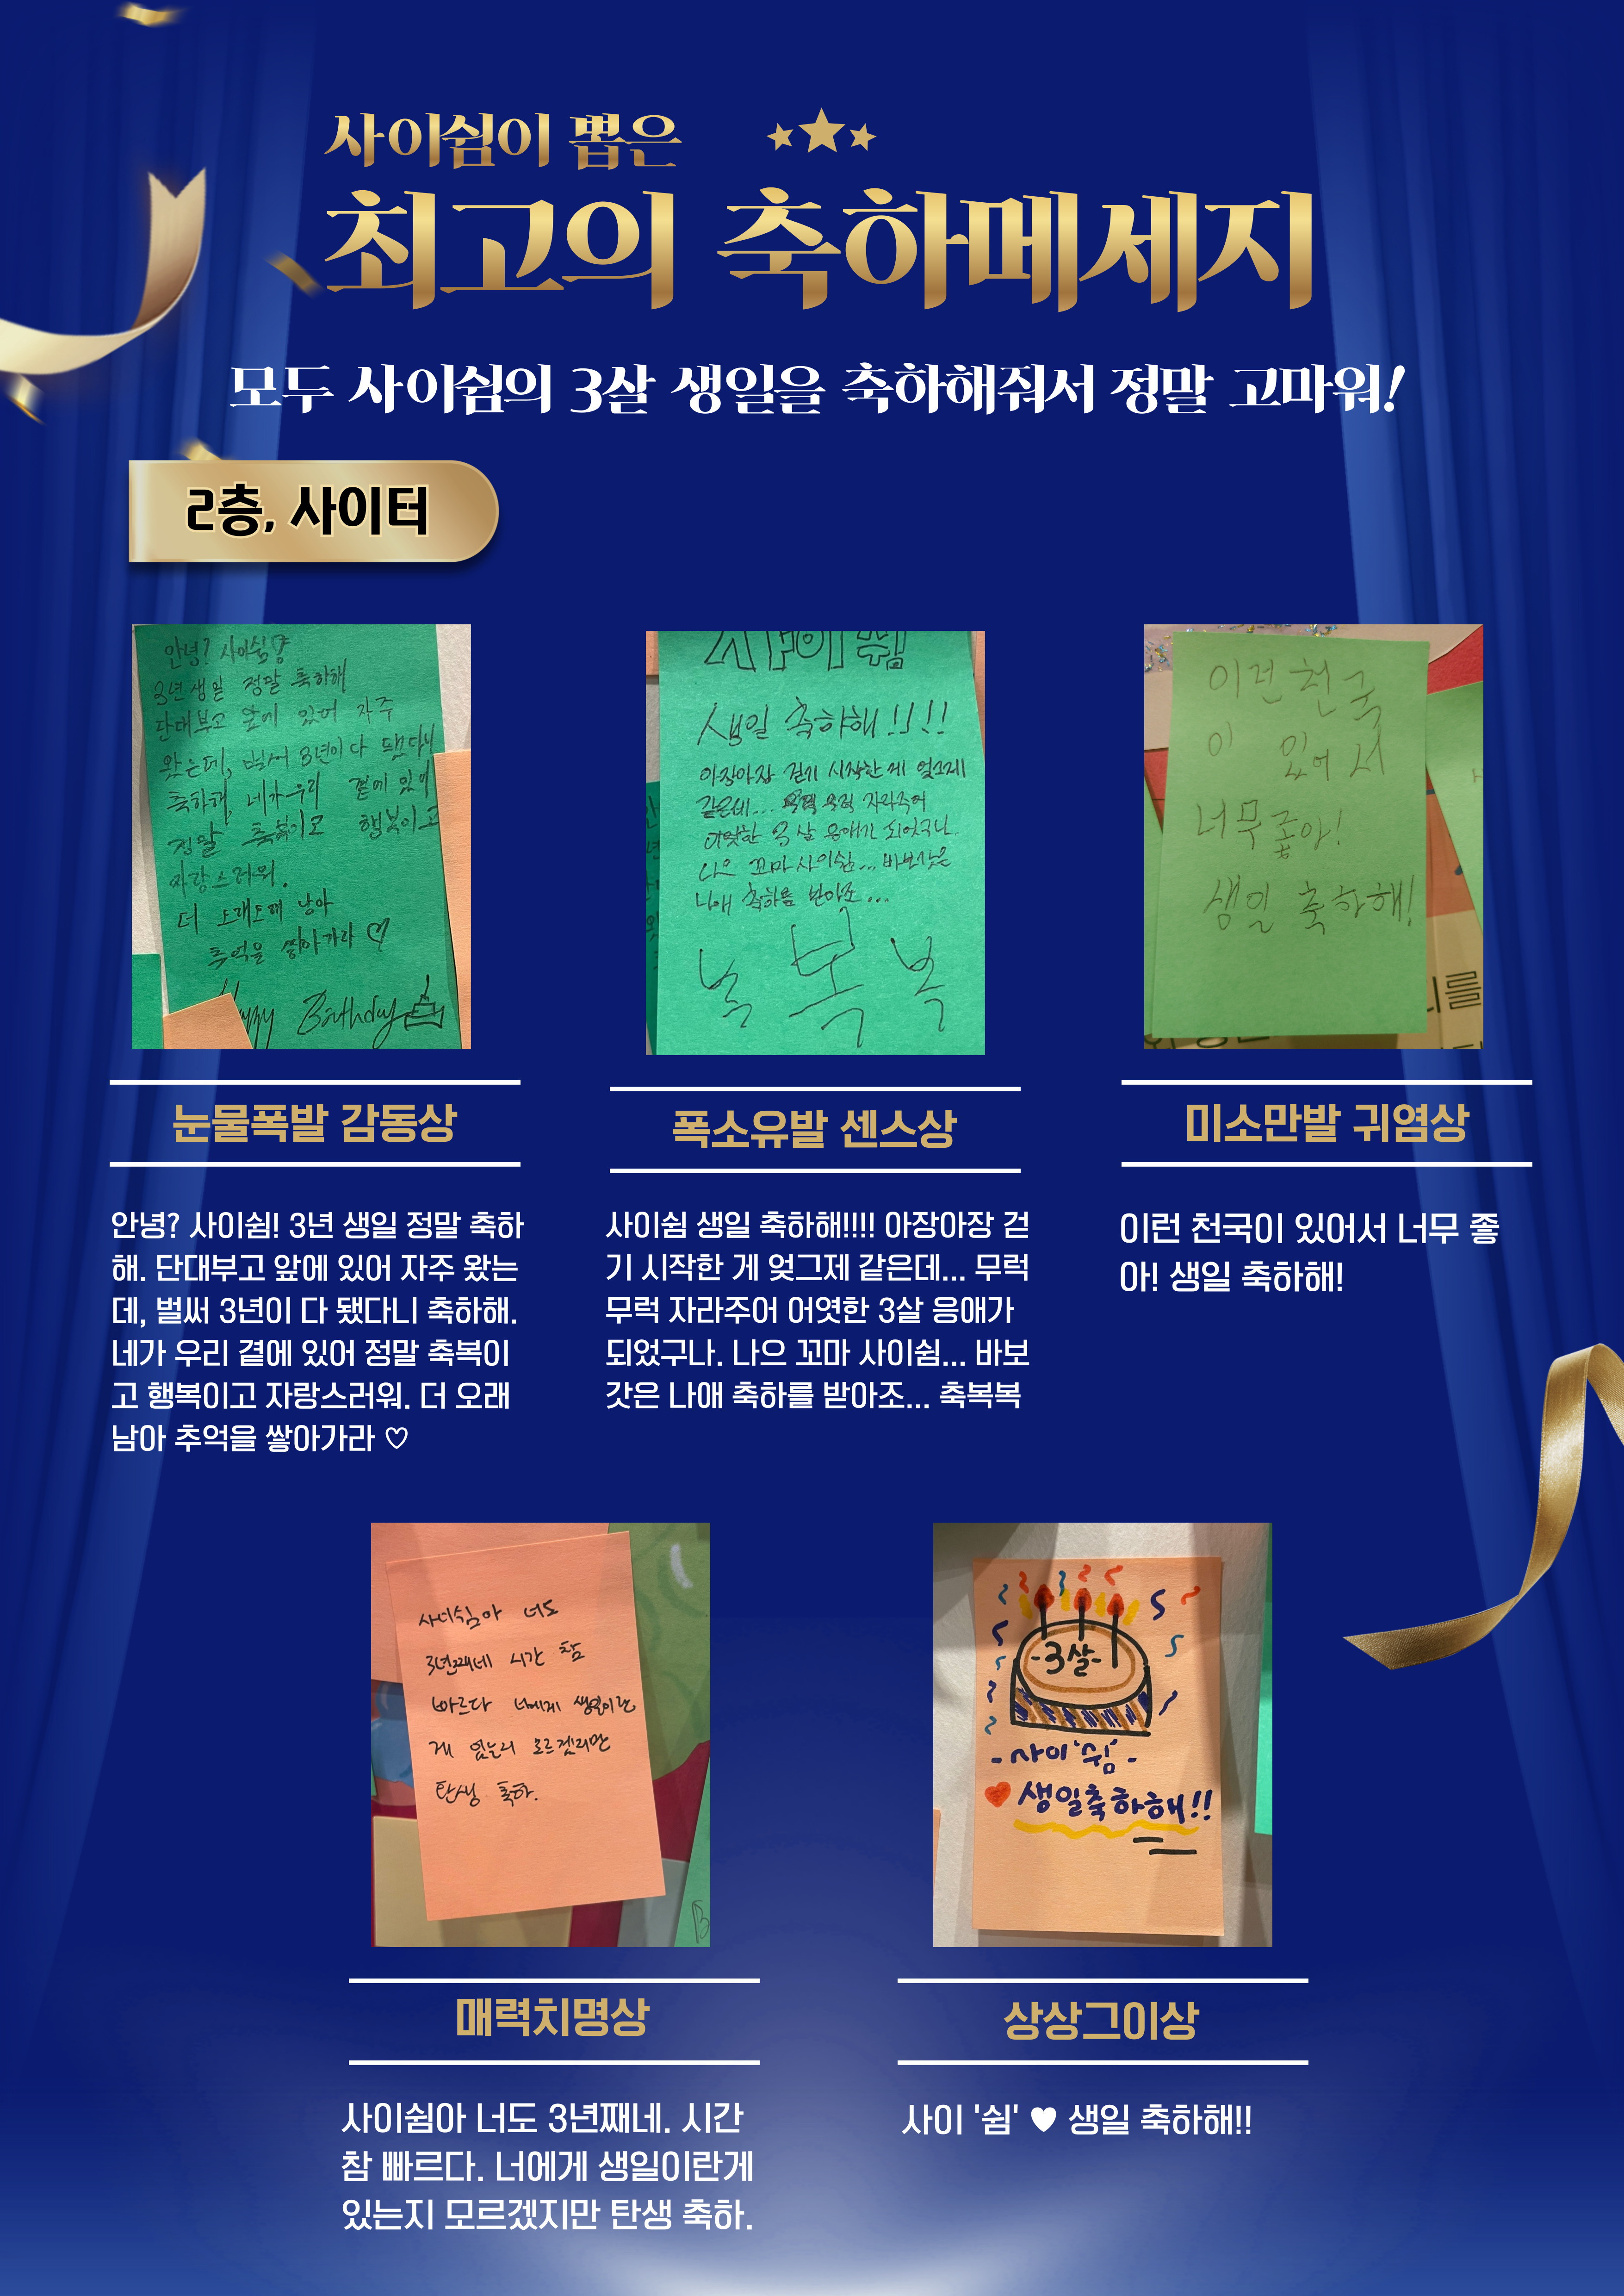 사이쉼이 뽑은
최고의 축하메세지
모두 사이쉼의 3살 생일을 축하해줘서 정말 고마워!
2층, 사이터
안녕? 사이쉼
3년 생일 정말 축하해
단대부고 앞에 있어 자주
왔는데, 벌써 3년이 다 됐다니
축하해, 네가 우리 곁에 있어
정말 축복이고 행복이고
자랑스러워.
더 오래오래 남아
추억을 쌓아가라 ♡
Birthday
눈물폭발 감동상
안녕? 사이쉼! 3년 생일 정말 축하
해. 단대부고 앞에 있어 자주 왔는
데, 벌써 3년이 다 됐다니 축하해.
네가 우리 곁에 있어 정말 축복이
고 행복이고 자랑스러워. 더 오래
남아 추억을 쌓아가라 ♡
사이쉼
생일 축하해!!!!
아장아장 걷기 시작한 게 엊그제
같은데... 무럭 무럭 자라주어
어엿한 3살 응애가 되었구나.
나으 꼬마 사이쉼... 바보갓은
나애 축하를 받아조...
복 복
폭소유발 센스상
사이쉼 생일 축하해!!!! 아장아장 걷
기 시작한 게 엊그제 같은데... 무럭
무럭 자라주어 어엿한 3살 응애가
되었구나. 나으 꼬마 사이쉼... 바보
갓은 나애 축하를 받아조... 축복복
이런 천국
이 있어서
너무 좋아!
생일 축하해!
미소만발 귀염상
이런 천국이 있어서 너무 좋
아! 생일 축하해!
사이쉼아 너도
3년째네 시간 참
빠르다 너에게 생일이란
게 있는지 모르겠지만
탄생 축하.
매력치명상
사이쉼아 너도 3년째네. 시간
참 빠르다. 너에게 생일이란게
있는지 모르겠지만 탄생 축하.
-3살-
-사이'쉼'-
♥ 생일축하해!!
상상그이상
사이 '쉼' ♥ 생일 축하해!!